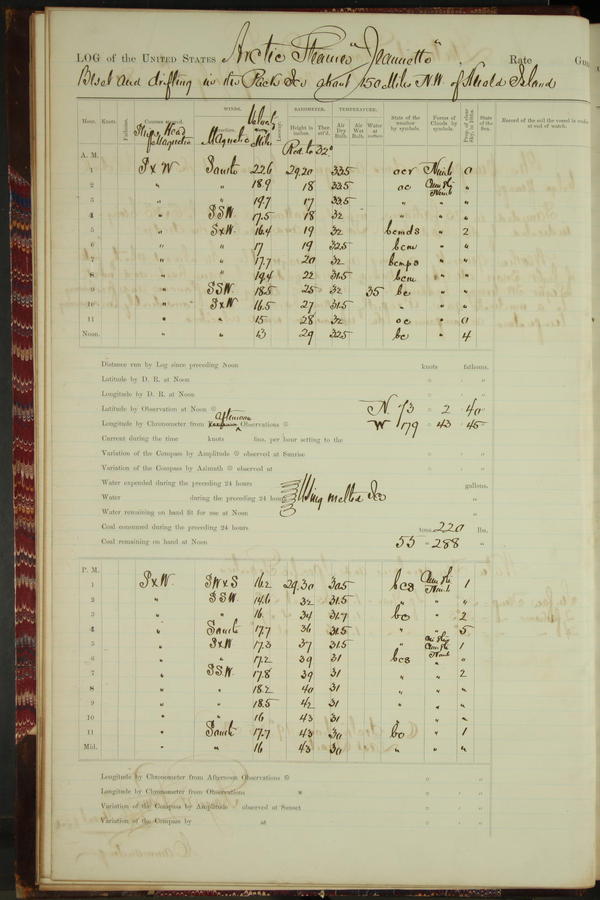 LOG of the UNITED STATES Arctic Steamer "Jeannette", Rate
Beset and drifting in the Pack Ice about 150 Miles N.W. of Herald Island
Hour. Knots. Fathoms. Courses steered. WINDS. BAROMETER. TEMPERATURE. State of the weather by symbols. Forms of Clouds by symbols. Prop. of clear sky, in 10ths. State of the Sea. Record of the sail the vessel is under at end of watch.
Ship's Head Magnetic Direction. Magnetic Velocity Miles Height in inches. Ther. att'd. Air Dry Bulb. Air Wet Bulb. Water at surface.
Red. to 32°
A. M.
1 SxW South 22.6 29.20 33.5 ocr Nimb 0
2 " " 18.9 18 33.5 oc Cum Str Nimb "
3 " " 19.7 17 33.5 " " "
4 " SSW. 17.5 18 32 " " "
5 " SxW. 16.4 19 32 bcmds " 2
6 " " 17 19 32.5 bcm " "
7 " " 17.7 20 32 bcmps " "
8 " " 19.4 22 31.5 bcm " "
9 " SSW. 18.5 25 32 35 bc " "
10 " SxW 16.5 27 31.5 " " "
11 " " 15 28 32 oc " 0
Noon. " " 13 29 32.5 bc " 4
Distance run by Log since preceding Noon knots fathoms.
Latitude by D. R. at Noon ° ' "
Longitude by D. R. at Noon ° ' "
Latitude by Observation at Noon ☉ N. 73 ° 2 ' 40 "
Longitude by Chronometer from Afternoon Observations ☉ W 179 ° 43 ' 45 "
Current during the time knots fms. per hour setting to the
Variation of the Compass by Amplitude ☉ observed at Sunrise ° ' "
Variation of the Compass by Azimuth ☉ observed at ° ' "
Water expended during the preceding 24 hours gallons.
Water during the preceding 24 hours Using melted Ice "
Water remaining on hand fit for use at Noon "
Coal consumed during the preceding 24 hours tons. 220 lbs.
Coal remaining on hand at Noon 55 " 288 "
P. M.
1 SxW. SWxS 16.2 29.30 30.5 bcs Cum Str Nimb 1
2 " SSW. 14.6 32 31.5 " " "
3 " " 16 34 31.7 bc " 2
4 " South 17.7 36 31.5 " " 5
5 " SxW 17.3 37 31.5 " Cum Str Nimb 1
6 " " 17.2 39 31 bcs " "
7 " SSW. 17.8 39 31 " " 2
8 " " 18.2 40 31 " " "
9 " " 18.5 42 31 " " "
10 " " 16 43 31 " " "
11 " South 17.7 43 30 bc " 1
Mid. " " 16 43 30 " " "
Longitude by Chronometer from Afternoon Observations ☉ ° ' "
Longitude by Chronometer from Observations * ° ' "
Variation of the Compass by Amplitude observed at Sunset ° ' "
Variation of the Compass by at ° ' "